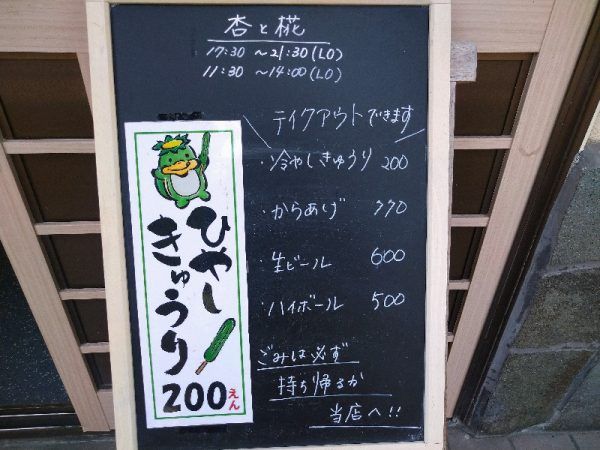 杏と椛
17:30 ～21:30(LO)
11:30 ～14:00(LO)
テイクアウトできます
・冷やしきゅうり 200
・からあげ 770
・生ビール 600
・ハイボール 500
ごみは必ず
持ち帰るか
当店へ!!
ひやし
きゅうり
200えん